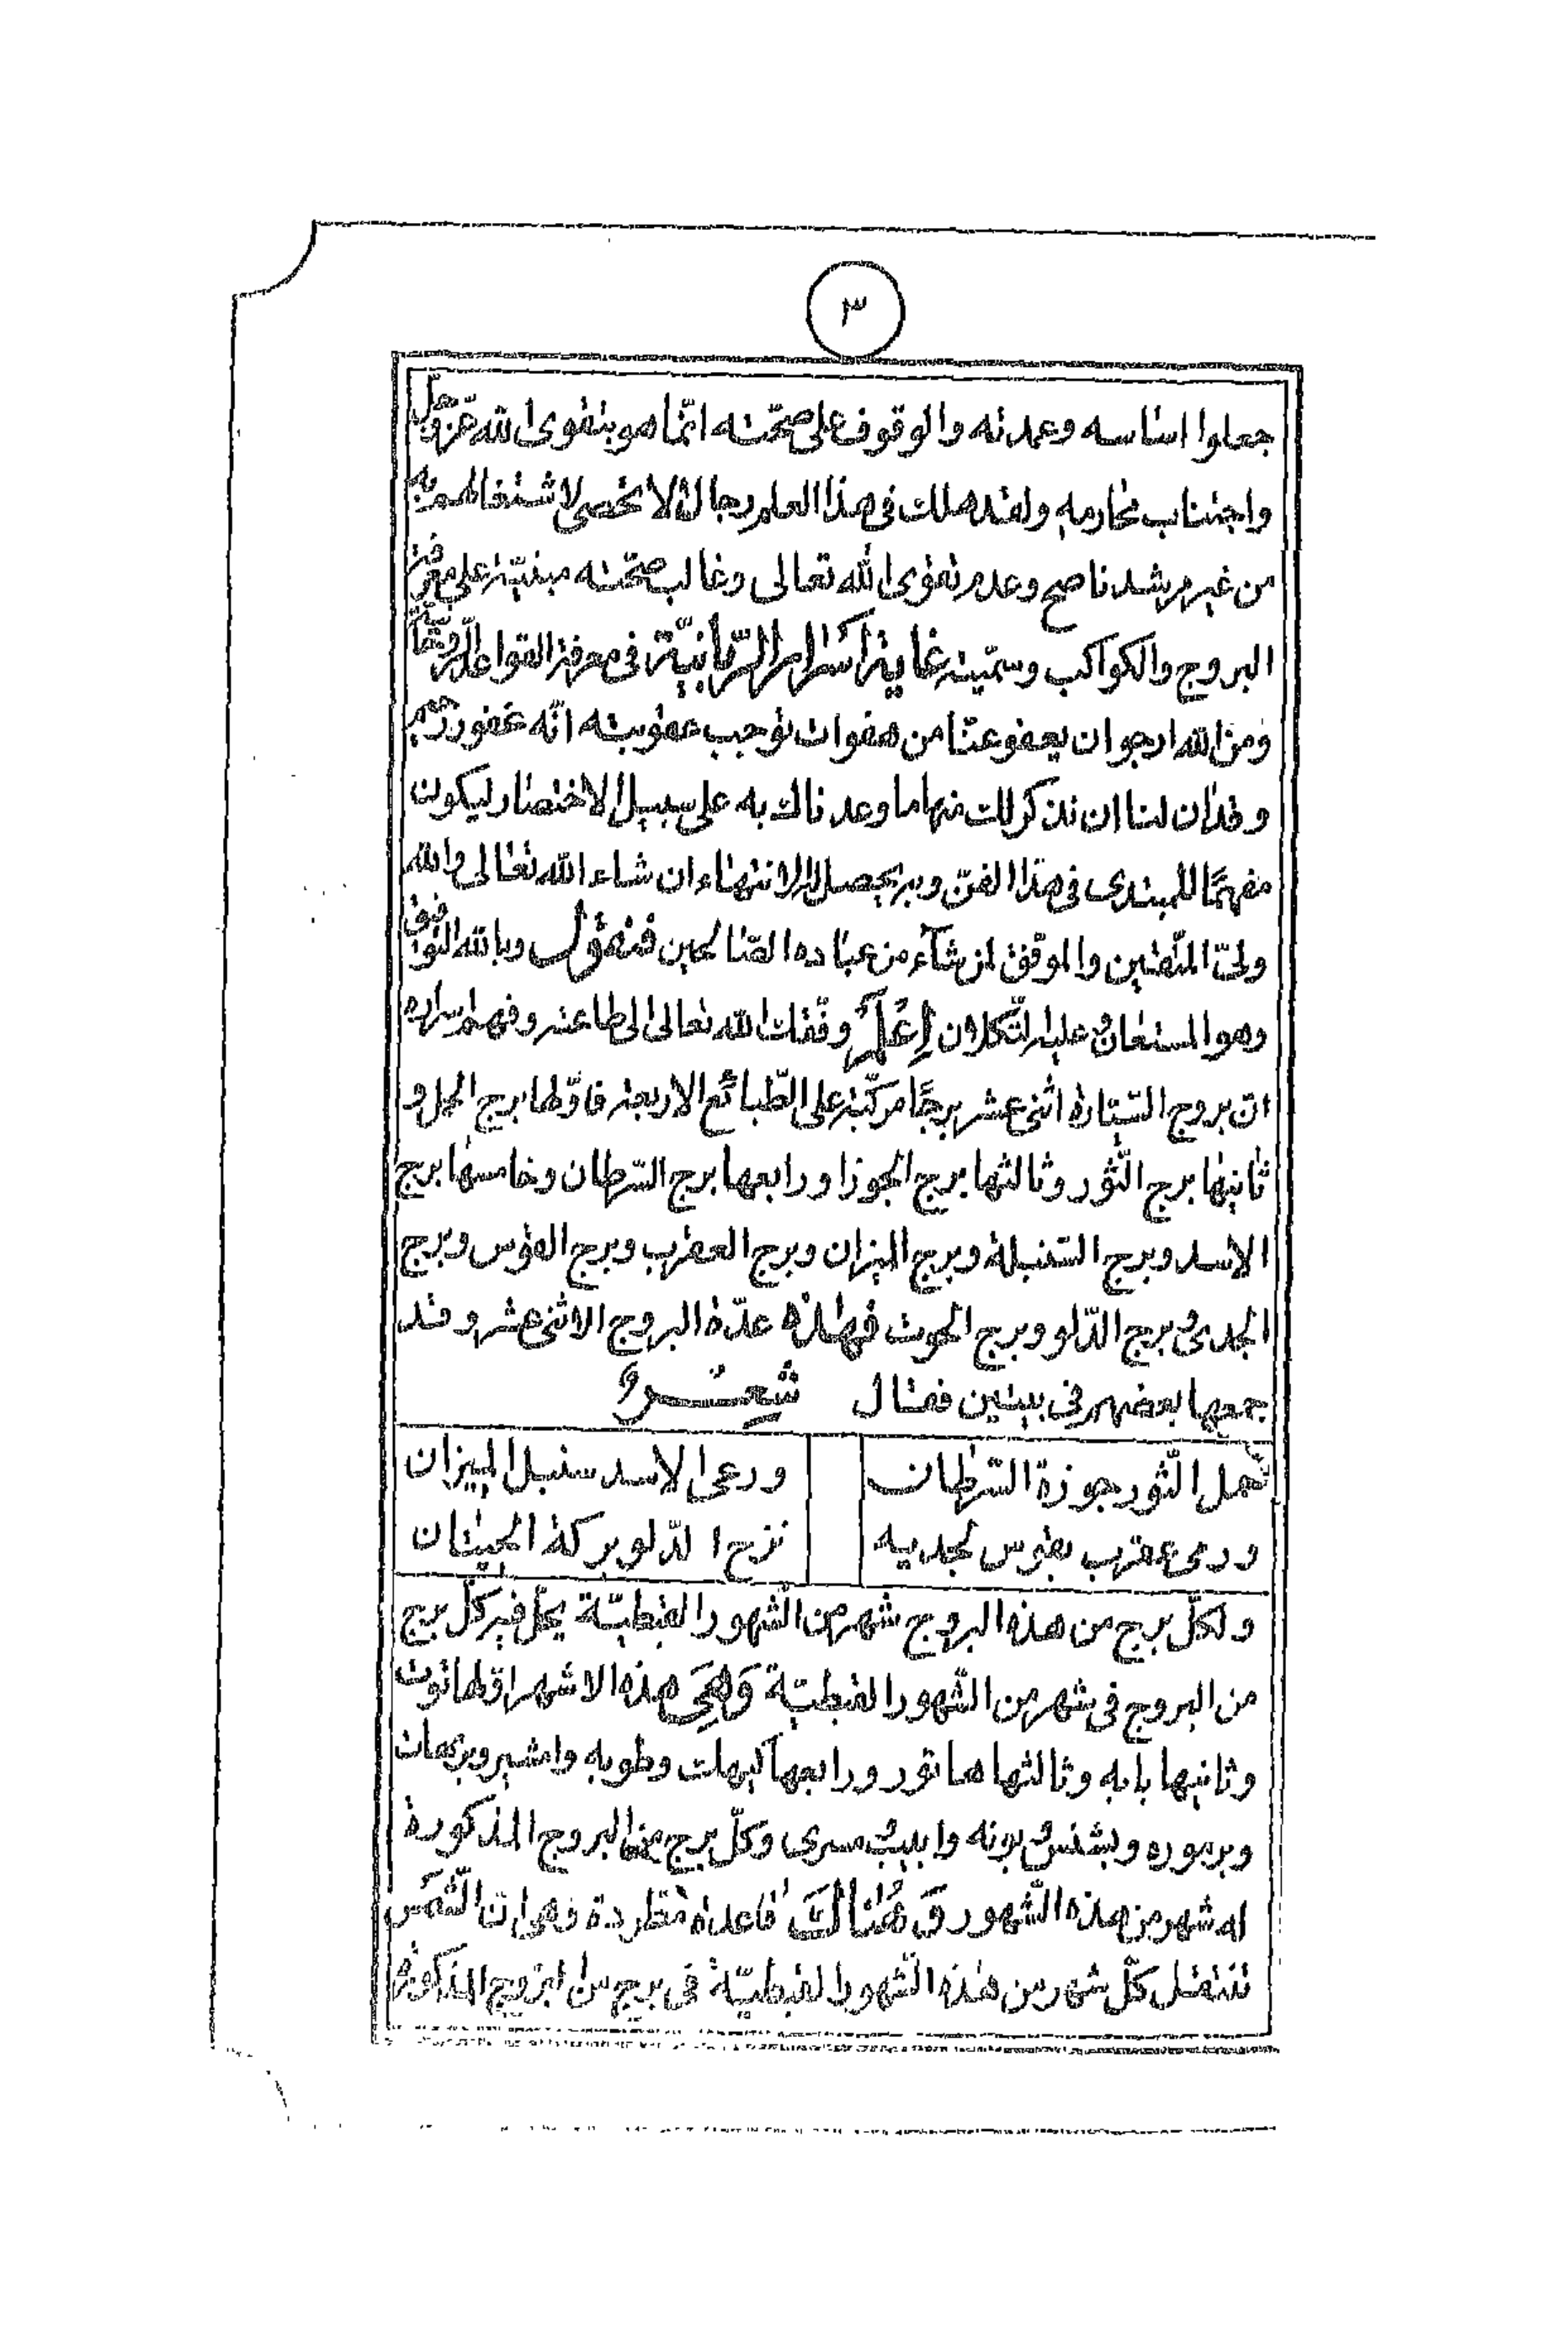 ٣
جعلوا اساسه وعمدته والوقوف على صحّته انّما هو بتقوى الله عزّ وجلّ
واجتناب محارمه ولقد هلك فى هذا العلم رجال لا تحصى لاشتغالهم به
من غير مرشد ناصح وعدم تقوى الله تعالى وغالب صحّته مبنيّة على معرفة
البروج والكواكب وسمّيته غاية اسرار الربّانيّة فى معرفة القواعد
ومن الله ارجو ان يعفو عنّا من هفوات توجب عقوبته انّه غفور رحيم
وقد ان لنا ان نذكر لك منها ما وعدناك به على سبيل الاختصار ليكون
مفهمًا للمبتدى فى هذا الفنّ وبه يحصل له الانتهاء ان شاء الله تعالى والله
ولىّ المتّقين والموفّق لمن شآء من عباده الصّالحين فنقول وبالله التوفيق
وهو المستعان وعليه التّكلان اِعْلَمْ وفّقك الله تعالى الى طاعته وفهم اسراره
انّ بروج السّيّارة اثنى عشر برجًا مركّبة على الطّبائع الاربعة فاوّلها برج الحمل و
ثانيها برج الثّور وثالثها برج الجوزا ورابعها برج السّرطان وخامسها برج
الاسد وبرج السّنبلة وبرج الميزان وبرج العقرب وبرج القوس وبرج
الجدى وبرج الدّلو وبرج الحوت فهذه عدّة البروج الاثنى عشر وقد
جمعها بعضهم فى بيتين فقال شعر
حمل الثّور جوزة السّرطان ورعى الاسد سنبل الميزان
ورمى عقرب بقوس لجديه نزح الدّلو بركة الحيتان
ولكلّ برج من هذه البروج شهر من الشّهور القبطيّة يحلّ فيه كلّ برج
من البروج فى شهر من الشّهور القبطيّة وَهِىَ هذه الاشهر اوّلها توت
وثانيها بابه وثالثها هاتور ورابعها كيهك وطوبه وامشير وبرمهات
وبرموده وبشنس وبونه وابيب ومسرى وكلّ برج من البروج المذكورة
له شهر من هذه الشّهور وَهُنَاكَ قاعدة مطّردة وهو انّ الشّمس
تنتقل كلّ شهر من هذه الشّهور القبطيّة فى برج من البروج المذكورة